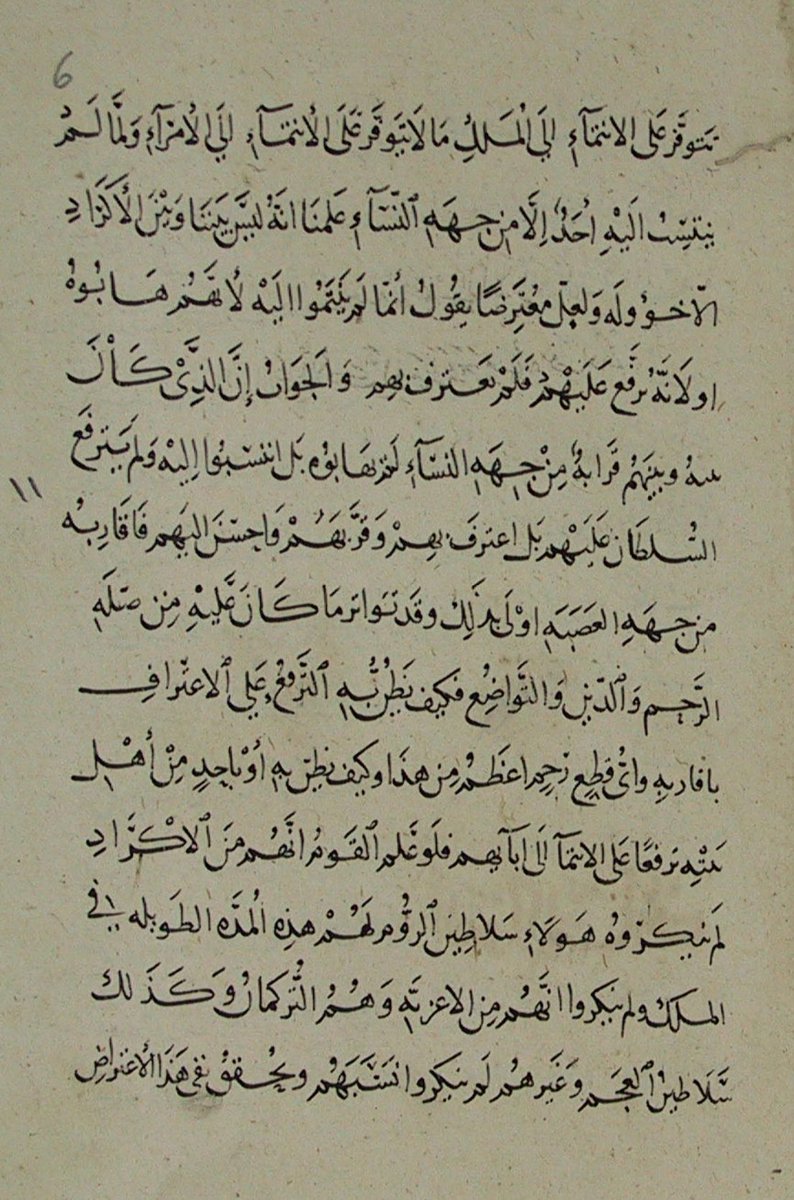 6
تتوفر على الانتماء الى الملك ما لا يتوفر على الانتماء الى الامراء ولما لم
ينتسب اليه احد الا من جهه النساء علمنا انه ليس بيننا وبين الاكراد
الا خؤوله ولعل معترضا يقول انما لم ينتموا اليه لانهم هابوه
او لانه ترفع عليهم فلم يعترف بهم والجواب ان الذي كان
بينه وبينهم قرابة من جهه النساء لم يهابوه بل انتسبوا اليه ولم يترفع
السلطان عليهم بل اعترف بهم وقربهم واحسن اليهم فاقاربه
من جهه العصبه اولى بذلك وقد تواتر ما كان عليه من صله
الرحم والدين والتواضع فكيف نظن به الترفع على الاعتراف
باقاربه واى قطع رحم اعظم من هذا وكيف نظن به او باحد من اهل
بيته ترفعا على الانتما الى ابآيهم فلو علم القوم انهم من الاكراد
لم ينكروه هولاء سلاطين الروم لهم هذه المده الطويله فى
الملك ولم ينكروا انهم من الاغزيه وهم التركمان وكذلك
سلاطين العجم وغيرهم لم ينكروا نسبهم ويحقق نفى هذا الاعتراض
١١